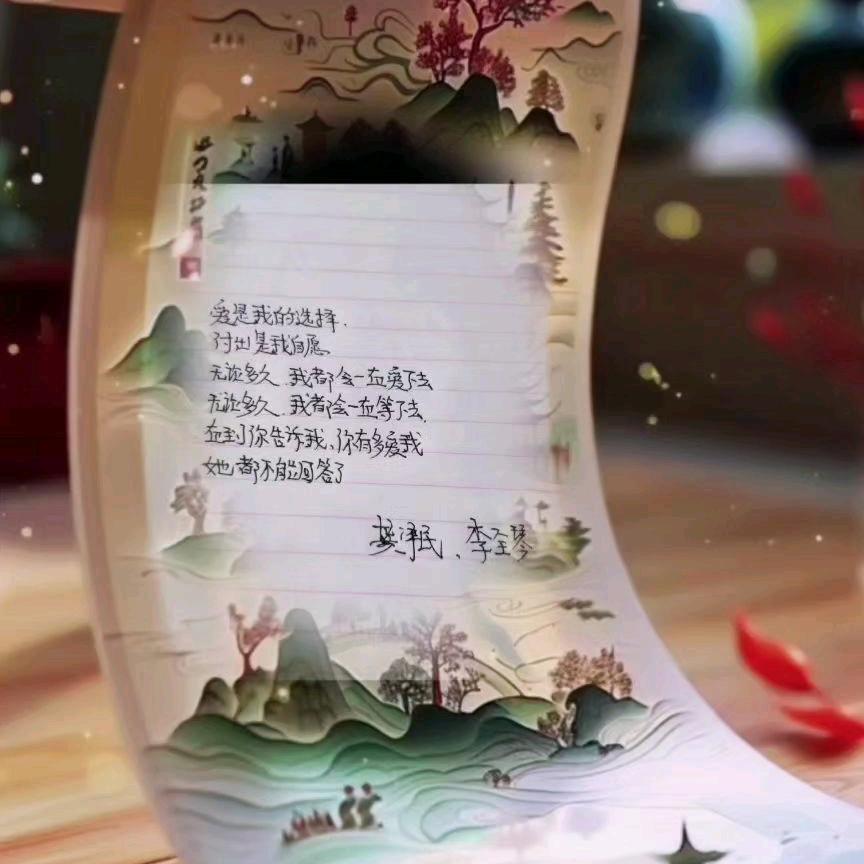 爱是我的选择.
付出是我自愿
无论多久.我都会一直爱下去
无论多久.我都会一直等下去.
直到你告诉我、你有多爱我
她都不能回答了
樊泽民、李全琴